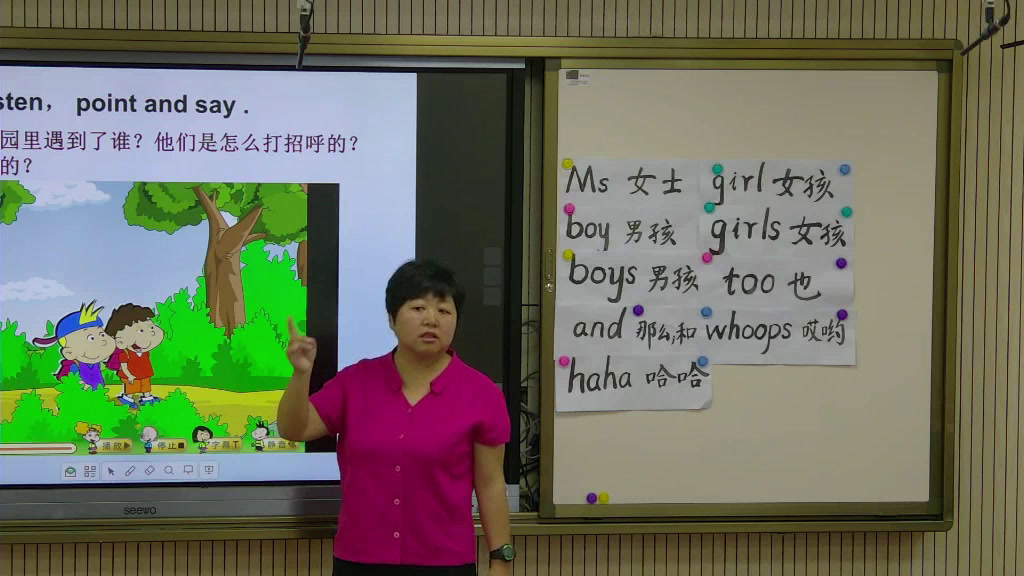 sten, point and say .
园里遇到了谁？他们是怎么打招呼的？
的？
播放
停止
字幕
静音
seewo
Ms 女士 girl 女孩
boy 男孩 girls 女孩
boys 男孩 too 也
and 那么,和 whoops 哎哟
haha 哈哈